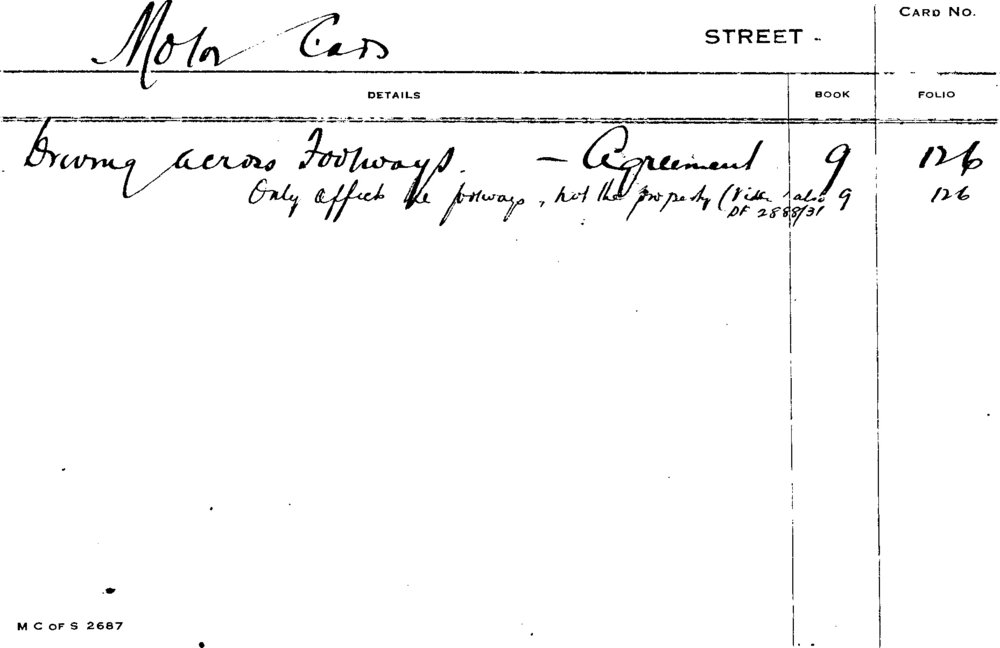 CARD NO.
Motor Cars STREET -
DETAILS BOOK FOLIO
Driving across Footways. — Agreement 9 126
Only affects the footways, not the property (Vide also 9 126
DF 2888/31
M C OF S 2687